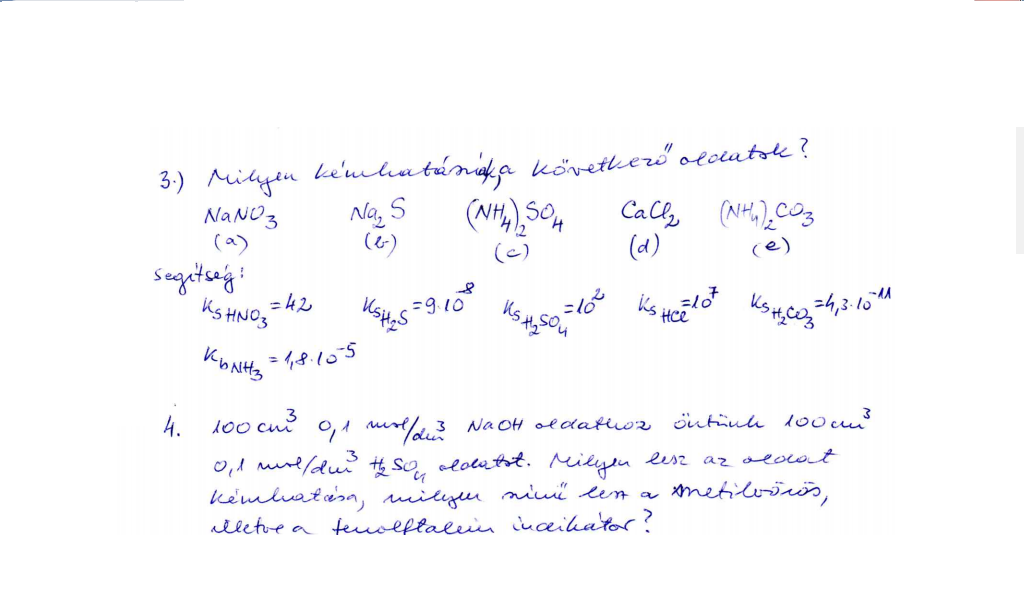 3.) Milyen kémhatásúak a következő oldatok?
NaNO₃ Na₂S (NH₄)₂SO₄ CaCl₂ (NH₄)₂CO₃
(a) (b) (c) (d) (e)
segítség:
Ks HNO₃ = 42 Ks H₂S = 9·10⁻⁸ Ks H₂SO₄ = 10² Ks HCl = 10⁷ Ks H₂CO₃ = 4,3·10⁻¹¹
Kb NH₃ = 1,8·10⁻⁵
4. 100 cm³ 0,1 mol/dm³ NaOH oldathoz öntünk 100 cm³
0,1 mol/dm³ H₂SO₄ oldatot. Milyen lesz az oldat
kémhatása, milyen színű lesz a metilvörös,
illetve a fenolftalein indikátor?